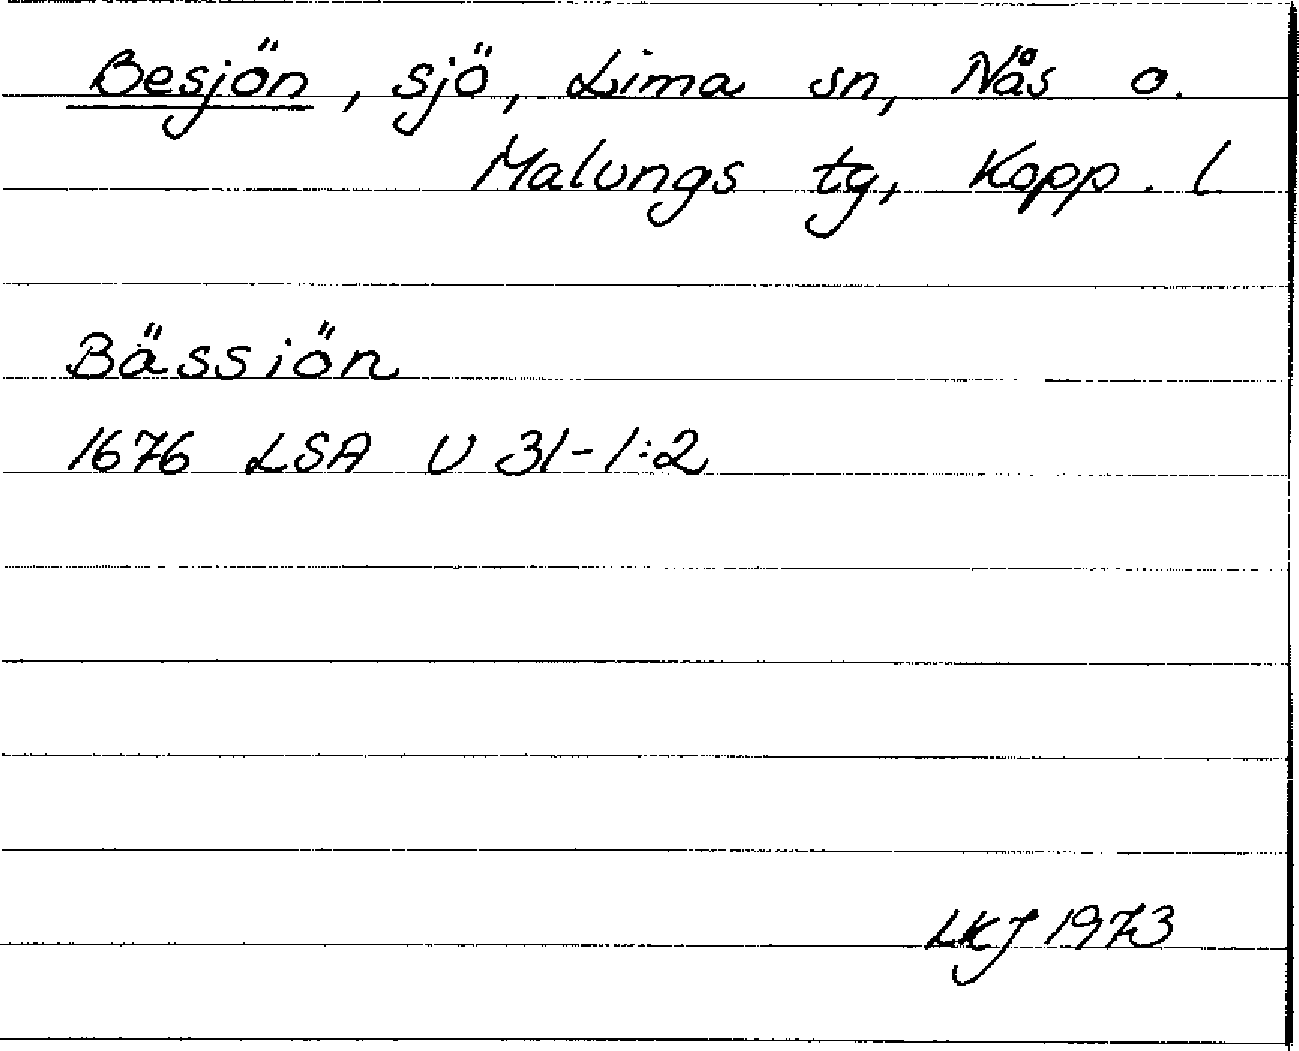 Besjön, sjö, Lima sn, Nås o.
Malungs tg, Kopp. l
Bässiön
1676 LSA U 31-1:2
LKJ 1973